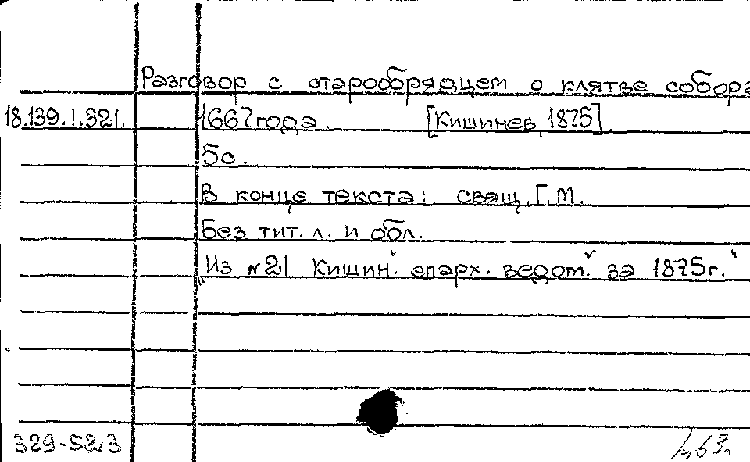 Разговор с старообрядцем о клятве собора
18.139.1.321. 1667 года. [Кишинев, 1875]
5с.
В конце текста: свящ. Г.М.
Без тит. л. и обл.
"Из №21 Кишин. епарх. ведом." за 1875г."
329-52,3